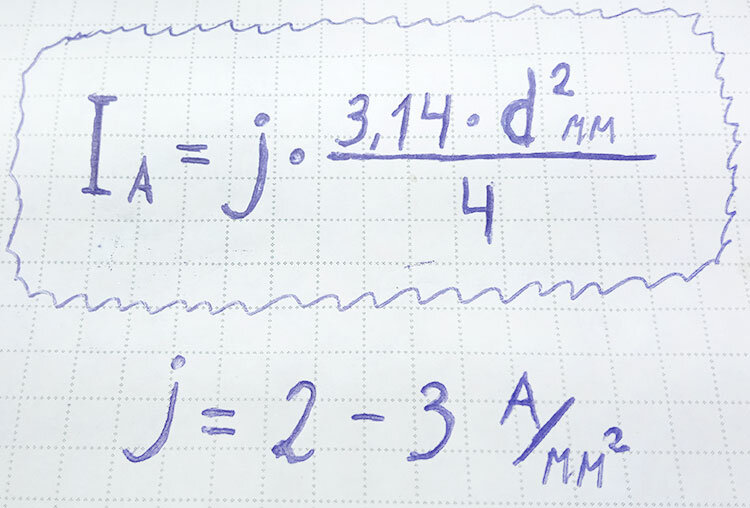 I_A = j · (3,14 · d²_мм) / 4
j = 2 - 3 А/мм²